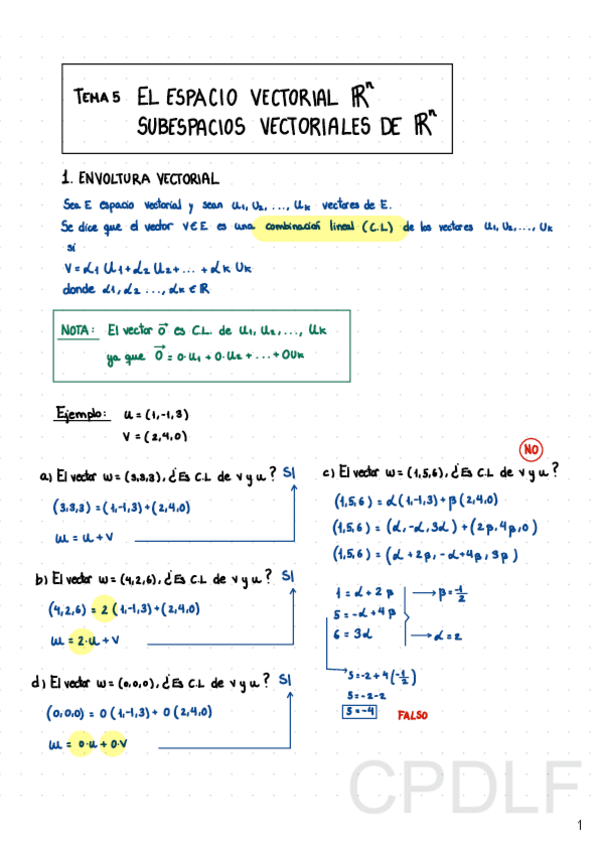 TEMA 5 EL ESPACIO VECTORIAL ℝⁿ
SUBESPACIOS VECTORIALES DE ℝⁿ
1. ENVOLTURA VECTORIAL
Sea E espacio vectorial y sean u₁, u₂, ..., uₖ vectores de E.
Se dice que el vector v ∈ E es una combinación lineal (C.L) de los vectores u₁, u₂, ..., uₖ
si
v = α₁ u₁ + α₂ u₂ + ... + αₖ uₖ
donde α₁, α₂ ..., αₖ ∈ ℝ
NOTA: El vector 0⃗ es C.L. de u₁, u₂, ..., uₖ
ya que 0⃗ = 0·u₁ + 0·u₂ + ... + 0uₖ
Ejemplo: u = (1,-1,3)
v = (2,4,0)
a) El vector w = (3,3,3), ¿Es C.L de v y u? SI
(3,3,3) = (1,-1,3) + (2,4,0)
w = u + v
b) El vector w = (4,2,6), ¿Es C.L de v y u? SI
(4,2,6) = 2 (1,-1,3) + (2,4,0)
w = 2·u + v
d) El vector w = (0,0,0), ¿Es C.L de v y u? SI
(0,0,0) = 0 (1,-1,3) + 0 (2,4,0)
w = 0·u + 0·v
NO
c) El vector w = (1,5,6), ¿Es C.L de v y u?
(1,5,6) = α(1,-1,3) + β(2,4,0)
(1,5,6) = (α, -α, 3α) + (2β, 4β, 0)
(1,5,6) = (α + 2β, -α + 4β, 3β)
1 = α + 2β → β = -1/2
5 = -α + 4β
6 = 3α → α = 2
5 = -2 + 4(-1/2)
5 = -2 - 2
5 = -4 FALSO
CPDLF
1